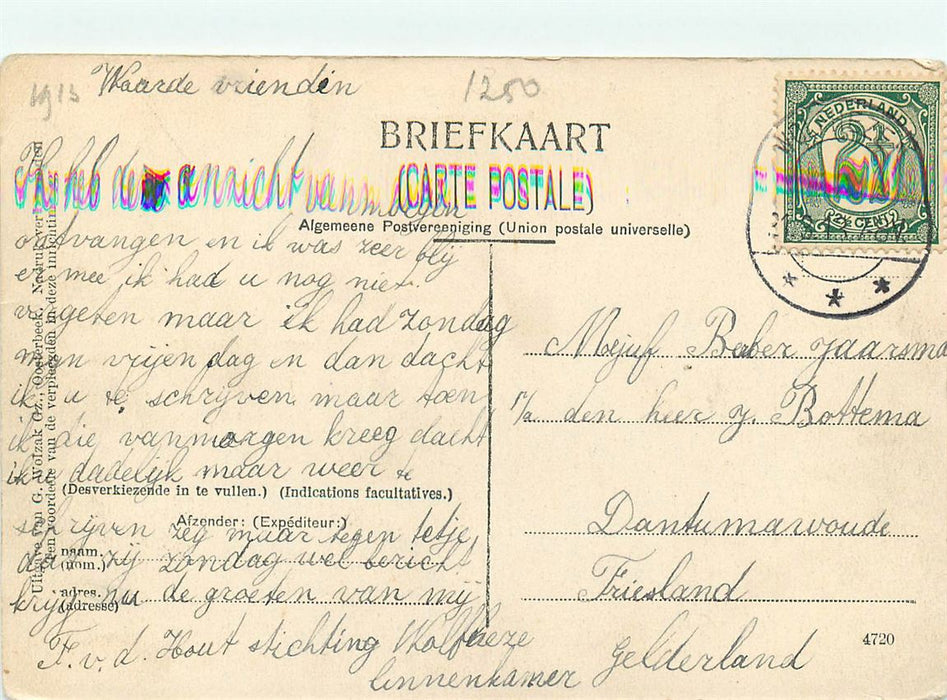 1913
Waarde vriendin
1250
BRIEFKAART
(CARTE POSTALE)
Algemeene Postvereeniging (Union postale universelle)
NEDERLAND
2½
(2½ CENT)
Ik heb de anzicht van morgen
ontvangen en ik was zeer blij
er mee ik had u nog niet
vergeten maar ik had zondag
mijn vrijen dag en dan dacht
ik u te schrijven maar toen
ik die vanmorgen kreeg dacht
ik dadelijk maar weer te
(Desverkiezende in te vullen.) (Indications facultatives.)
schrijven zeg maar tegen tetje
Afzender: (Expéditeur:)
dat zij zondag wel bericht
naam.
(nom.)
krijg nu de groeten van mij
adres.
(adresse)
F. v. d. Hout stichting Wolfheze
linnenkamer Gelderland
Mejuf Baber Jaarsma
p/a den heer J. Bottema
Dantumawoude
Friesland
4720
Uitgave van G. Wolzak Gz., Oosterbeek. Nadruk verboden
ten voordeele van de verpleegden in deze inrichting